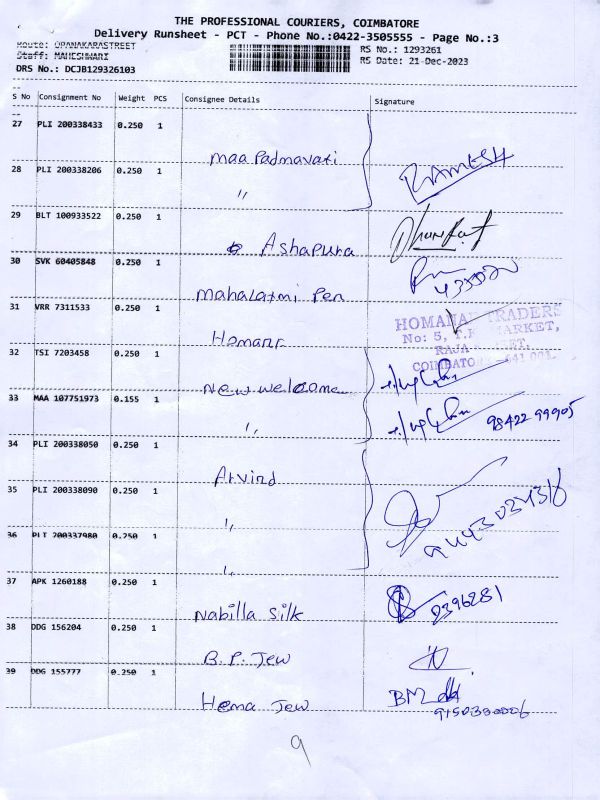 THE PROFESSIONAL COURIERS, COIMBATORE
Delivery Runsheet - PCT - Phone No.:0422-3505555 - Page No.:3
Route: OPANAKARASTREET
Staff: MAHESHWARI
DRS No.: DCJB129326103
RS No.: 1293261
RS Date: 21-Dec-2023
S No Consignment No Weight PCS Consignee Details Signature
27 PLI 200338433 0.250 1
Maa Padmavati RAMESH
28 PLI 200338206 0.250 1
"
29 BLT 100933522 0.250 1
Ashapura
30 SVK 60405848 0.250 1
Mahalaxmi Pen
31 VRR 7311533 0.250 1
HOMANAR TRADERS
No: 5, T.K. MARKET,
RAJA STREET,
COIMBATORE - 641 001.
Homanr
32 TSI 7203458 0.250 1
New welcome
33 MAA 107751973 0.155 1
" 98422 99905
34 PLI 200338050 0.250 1
Arvind
35 PLI 200338090 0.250 1
"
36 PLI 200337980 0.250 1
"
37 APK 1260188 0.250 1
Nabilla Silk 2396281
38 DDG 156204 0.250 1
B.P. Jew
39 DDG 155777 0.250 1
Hema Jew
9150390006
9